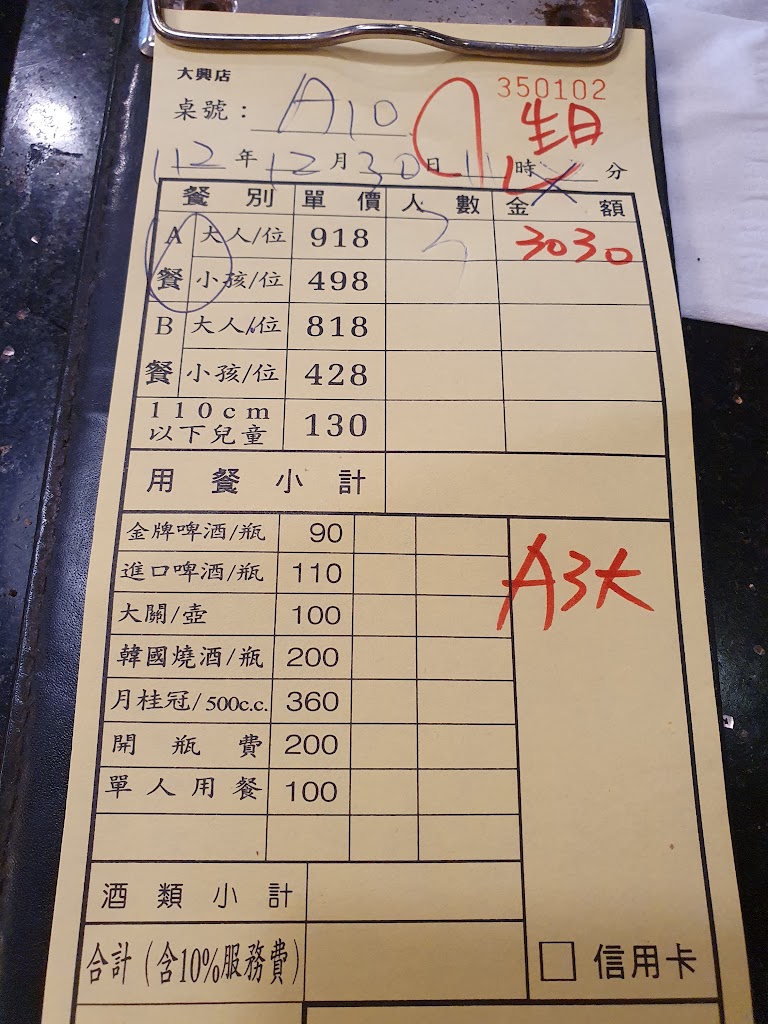 大興店
350102
桌號：A10
生日
112年12月30日11時 分
餐別 單價 人數 金額
A餐 大人/位 918 3 3030
小孩/位 498
B餐 大人/位 818
小孩/位 428
110cm以下兒童 130
用餐小計
金牌啤酒/瓶 90
進口啤酒/瓶 110
A3大
大關/壺 100
韓國燒酒/瓶 200
月桂冠/500c.c. 360
開瓶費 200
單人用餐 100
酒類小計
合計（含10%服務費）
信用卡